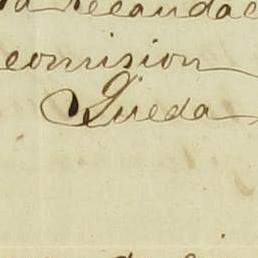 recaudac
comision
Queda